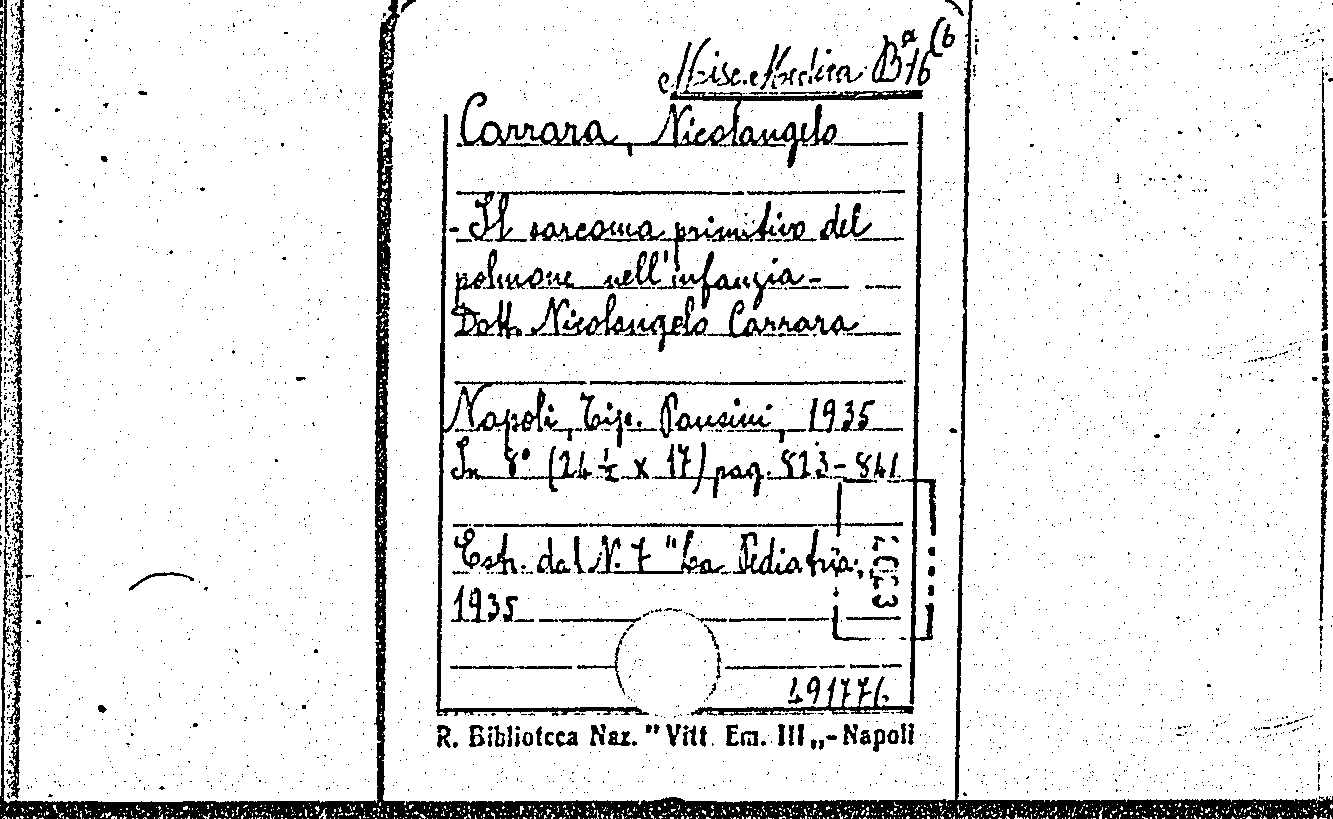 Misc. Medica B^a 76 (6
Carrara, Nicolangelo
- Il sarcoma primitivo del
polmone nell'infanzia -
Dott. Nicolangelo Carrara
Napoli, Tip. Pausini, 1935
In 8° (24 ½ x 17) pag. 823-841
Estr. dal N. 7 "La Pediatria„
1935
491776
R. Biblioteca Naz. "Vitt. Em. III„ - Napoli